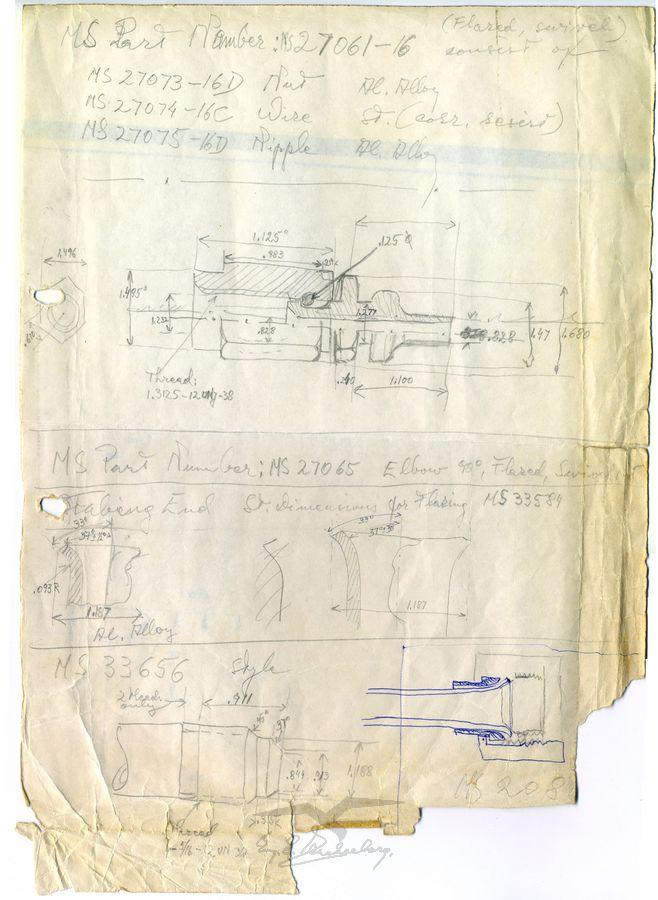 MS Part Number: MS 27061-16 (Flared, swivel)
consist of
MS 27073-16D Nut Al. Alloy
MS 27074-16C Wire St. (corr. resist)
MS 27075-16D Nipple Al. Alloy
1.125"
.983
.125 Φ
1.496
1.495"
1.232
.828
1.277
.828
1.47
1.680
Thread:
1.3125-12UNJ-3B
.240
1.100
MS Part Number: MS 27065 Elbow 90°, Flared,
Tubeing End St. Dimensions for Flaring MS 33584
33°
33°
.093R
1.187
1.187
Al. Alloy
MS 33656 Style
2 Thread
only
.911
.849
.913
1.188
Thread
MS 208